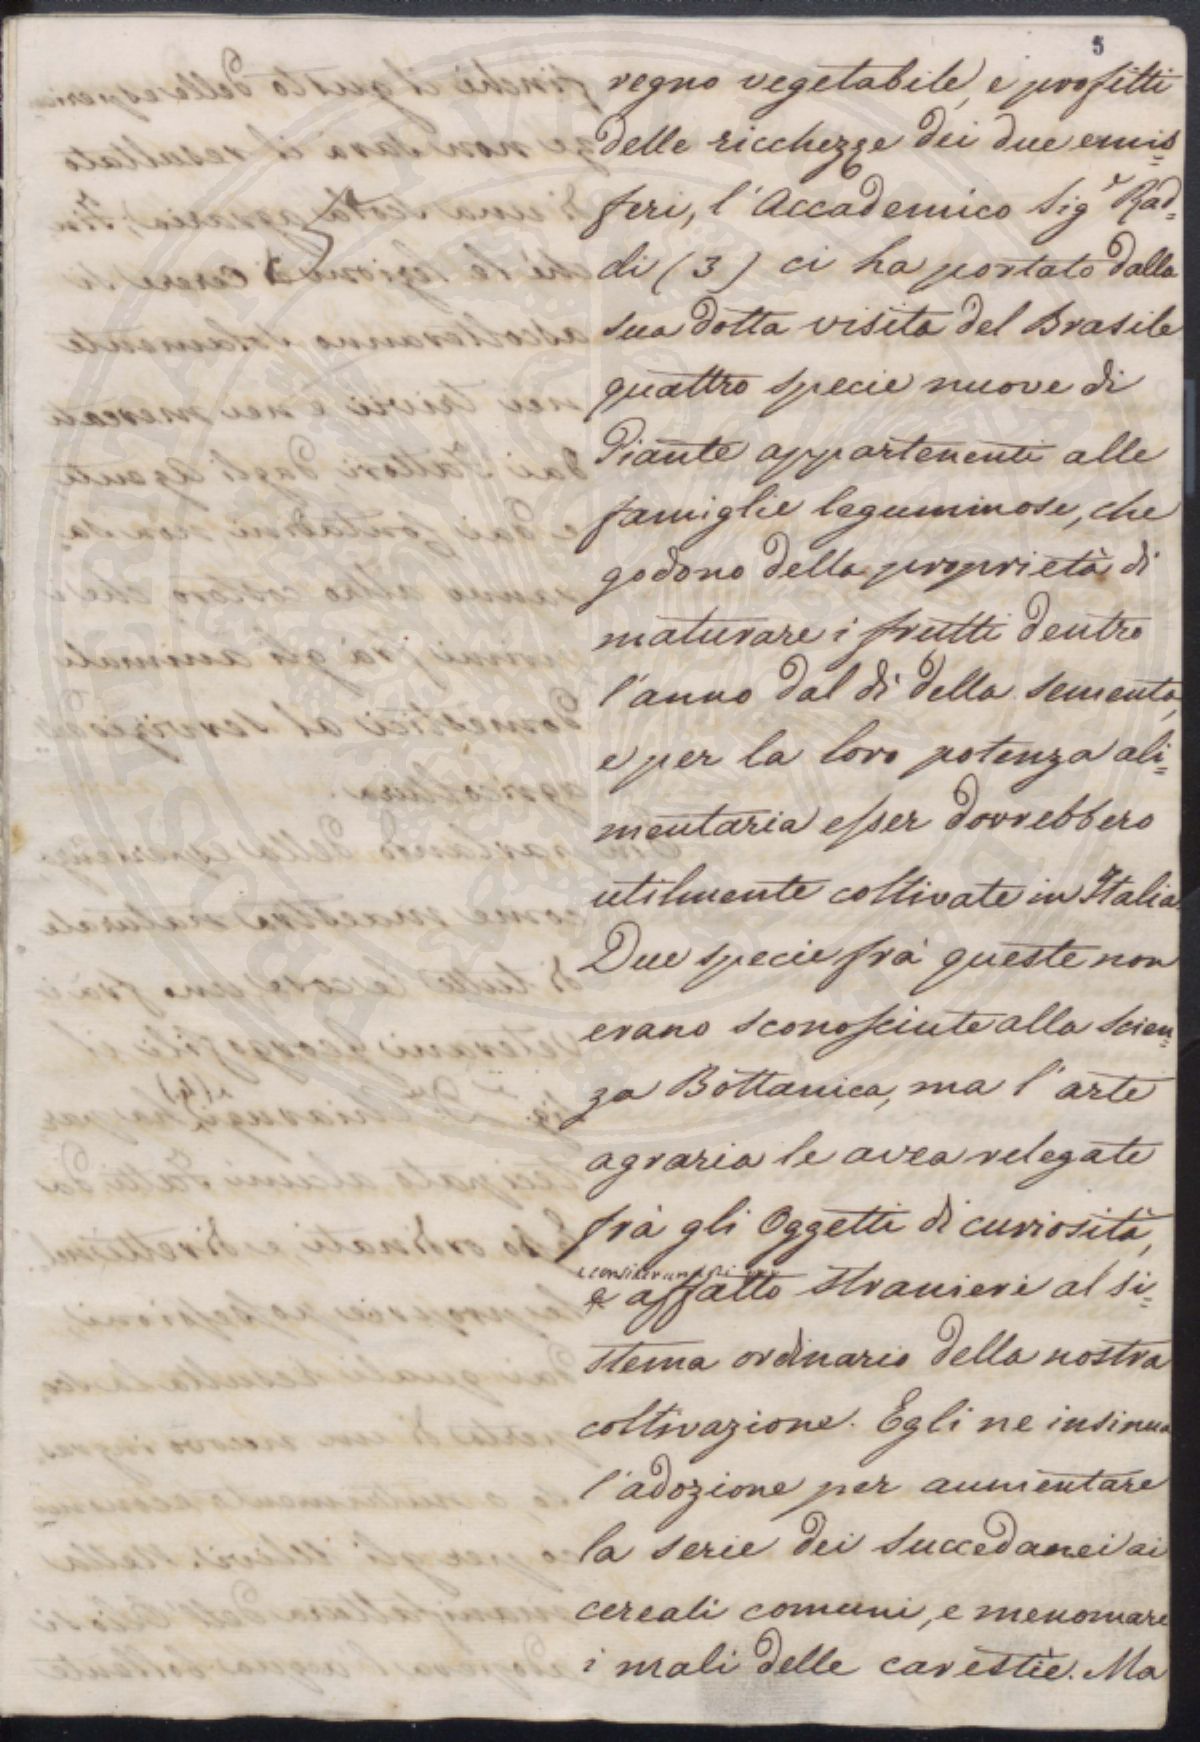 5
regno vegetabile, e profitti
delle ricchezze dei due emis=
feri, l'Accademico Sigr Rad=
di (3) ci ha portato dalla
sua dotta visita del Brasile
quattro specie nuove di
Piante appartenenti alle
famiglie leguminose, che
godono della proprietà di
maturare i frutti dentro
l'anno dal dì della sementa,
e per la loro potenza ali=
mentaria esser dovrebbero
utilmente coltivate in Italia.
Due specie frà queste non
erano sconosciute alla scien=
za Bottanica, ma l'arte
agraria le avea relegate
frà gli Oggetti di curiosità,
affatto stranieri al si=
stema ordinario della nostra
coltivazione. Egli ne insinua
l'adozione per aumentare
la serie dei succedanei ai
cereali comuni, e menomare
i mali delle carestie. Ma